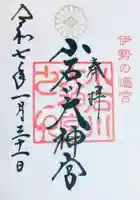 伊勢の遙宮
奉拝
小石川大神宮
令和七年一月三十一日